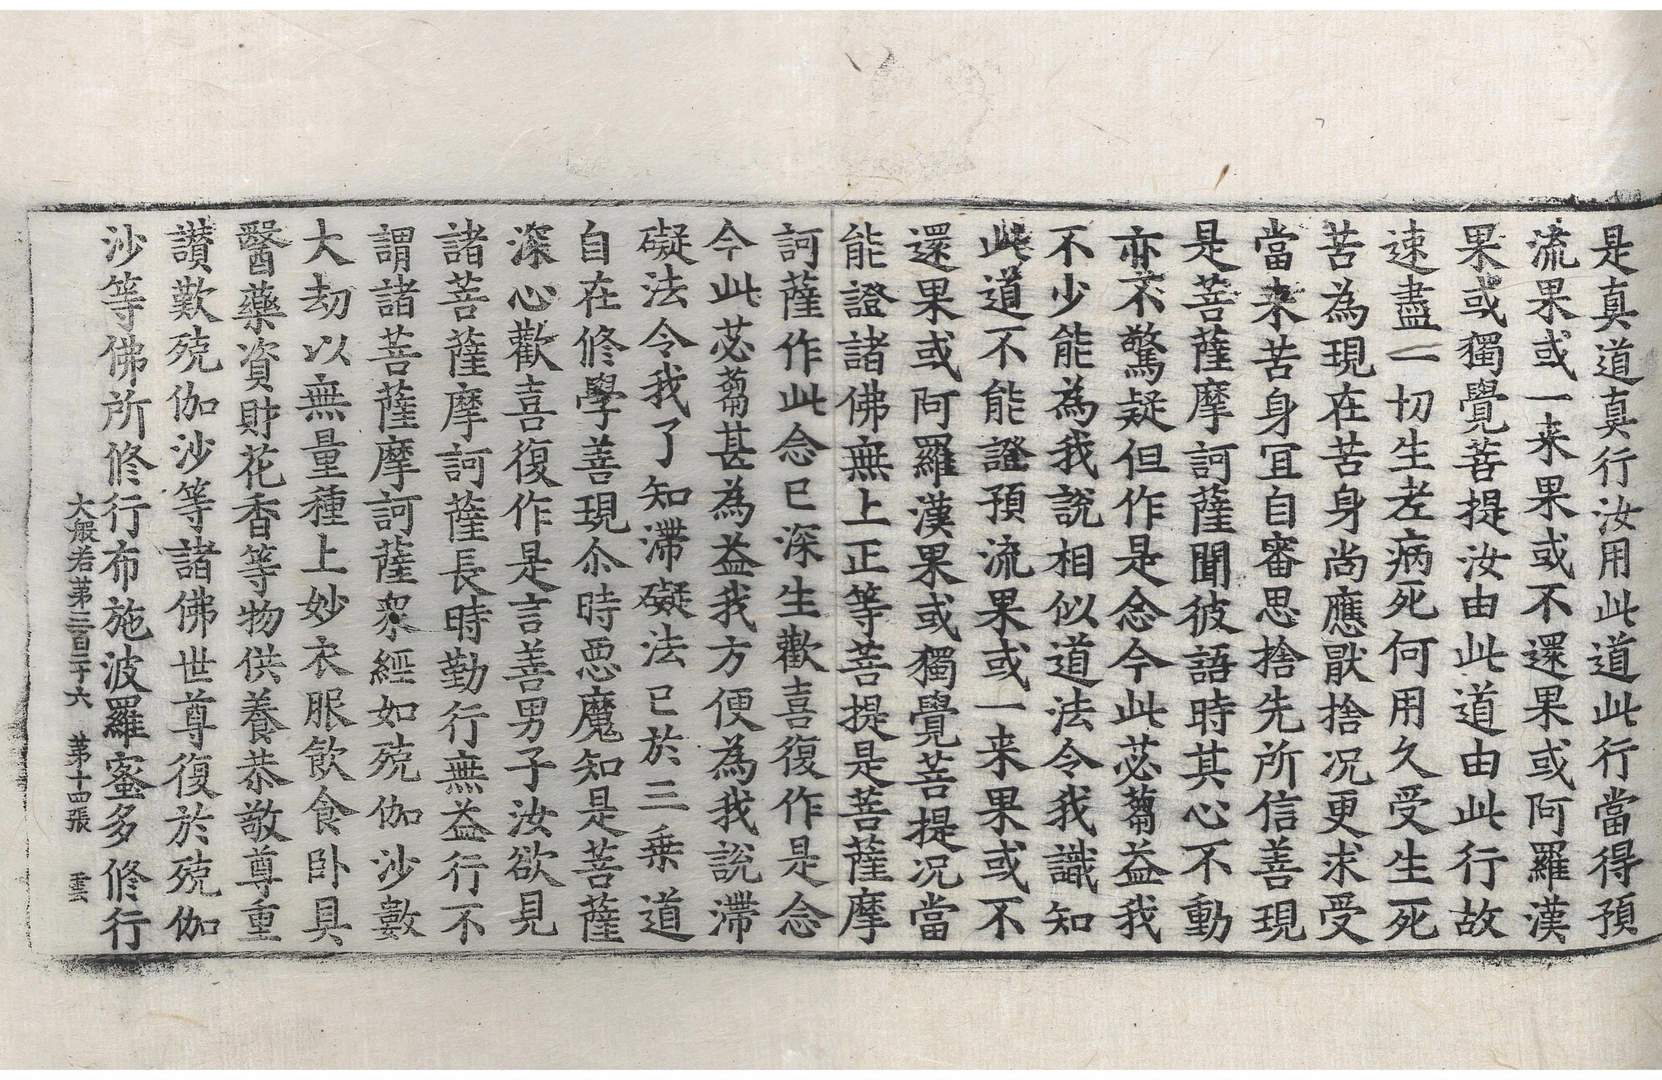 是真道真行汝用此道此行當得預
流果或一来果或不還果或阿羅漢
果或獨覺菩提汝由此道由此行故
速盡一切生老病死何用久受生死
苦為現在苦身尚應猒捨况更求受
當来苦身冝自審思捨先所信善現
是菩薩摩訶薩聞彼語時其心不動
亦不驚疑但作是念今此苾蒭益我
不少能為我說相似道法令我識知
此道不能證預流果或一来果或不
還果或阿羅漢果或獨覺菩提况當
能證諸佛無上正等菩提是菩薩摩
訶薩作此念已深生歡喜復作是念
今此苾蒭甚為益我方便為我說滯
礙法令我了知滯礙法已於三乗道
自在修學善現尒時惡魔知是菩薩
深心歡喜復作是言善男子汝欲見
諸菩薩摩訶薩長時勤行無益行不
謂諸菩薩摩訶薩衆經如殑伽沙數
大劫以無量種上妙衣服飲食卧具
醫藥資財花香等物供養恭敬尊重
讃歎殑伽沙等諸佛世尊復於殑伽
沙等佛所修行布施波羅蜜多修行
大般若第三百二十六　第十四張　雲